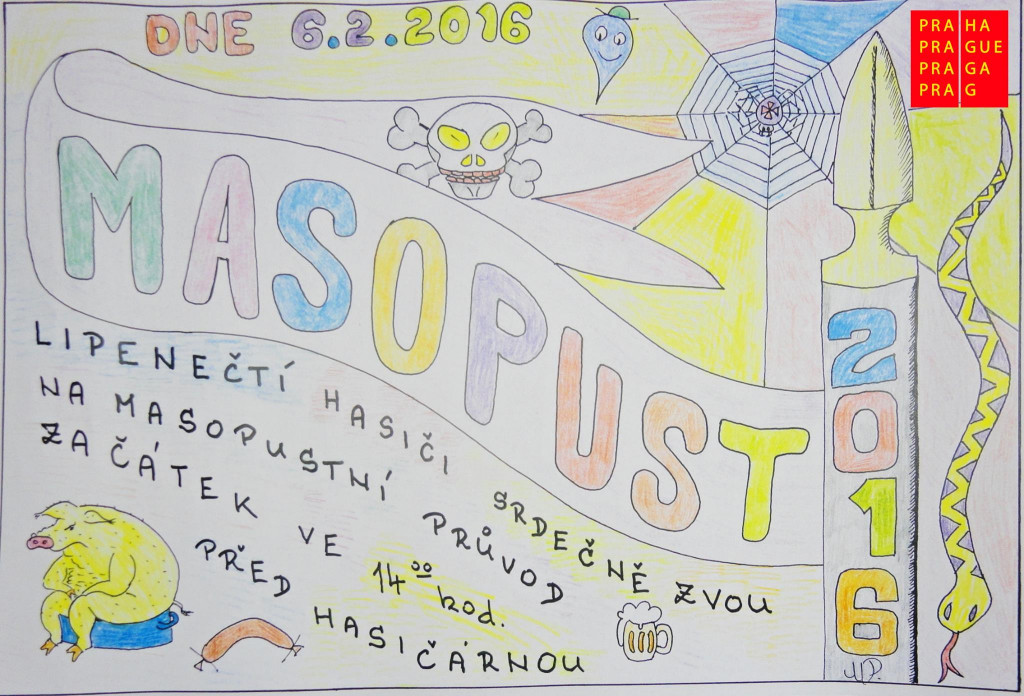 DNE 6.2.2016
PRAHA
PRAGUE
PRAGA
PRAG
MASOPUST
2016
LIPENEČTÍ HASIČI SRDEČNĚ ZVOU
NA MASOPUSTNÍ PRŮVOD
ZAČÁTEK VE 14⁰⁰ hod.
PŘED HASIČÁRNOU